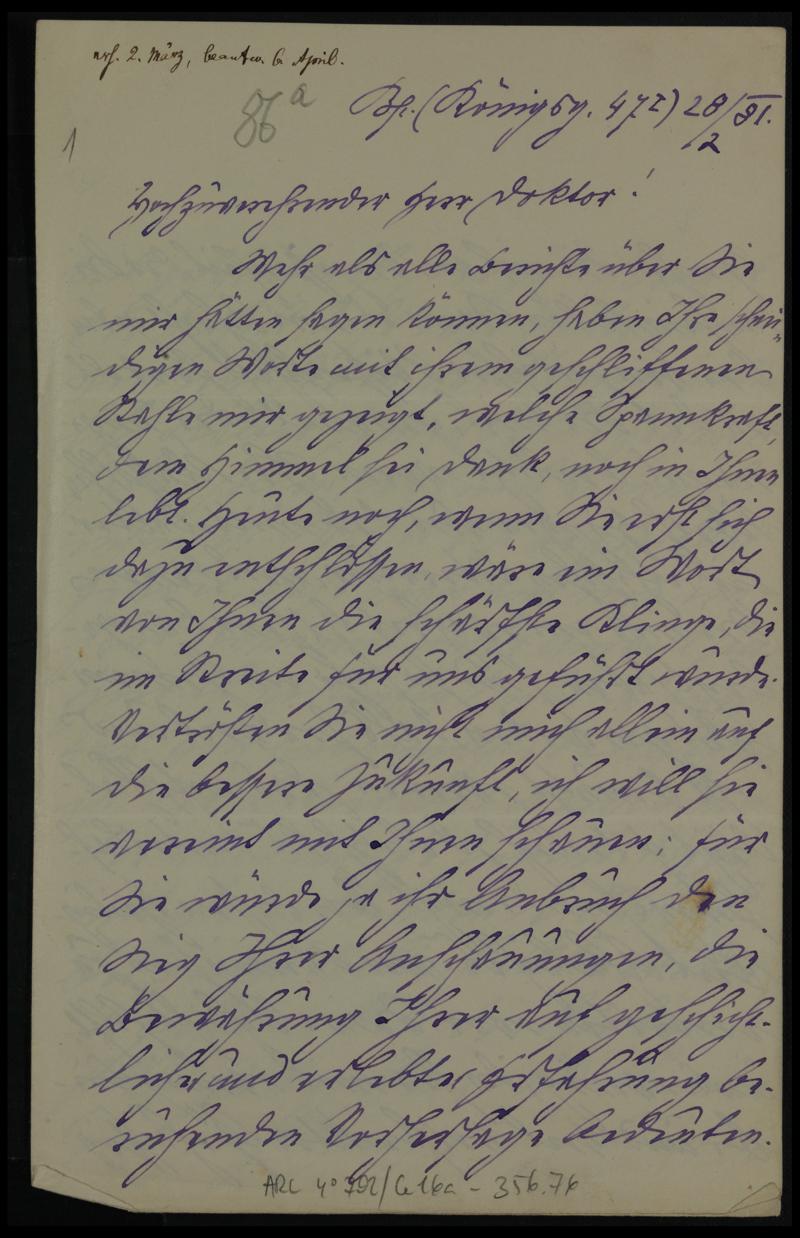 erh. 2. März, beantw. 6 April.
86a
1
Bp. (Königsg. 47 I) 28/2 81.
Hochzuverehrender Herr Doktor!
Mehr als alle Berichte über Sie
mir hätten sagen können, haben Ihre schnei-
digen Worte mit ihrem geschliffenen
Stahle mir gezeigt, welche Spannkraft,
dem Himmel sei Dank, noch in Ihnen
lebt. Heute noch, wenn Sie erst sich
dazu entschlössen, wäre ein Wort
von Ihnen die schärfste Klinge, die
im Streite für uns geführt würde.
Vertrösten Sie nicht mich allein auf
die bessere Zukunft, ich will sie
vereint mit Ihnen schauen; für
Sie würde ja ihr Anbruch den
Sieg Ihrer Anschauungen, die
Bewährung Ihrer auf geschicht-
licher und erlebter Erfahrung be-
ruhenden Vorhersage bedeuten.
ARC 4° 792/ 356.76